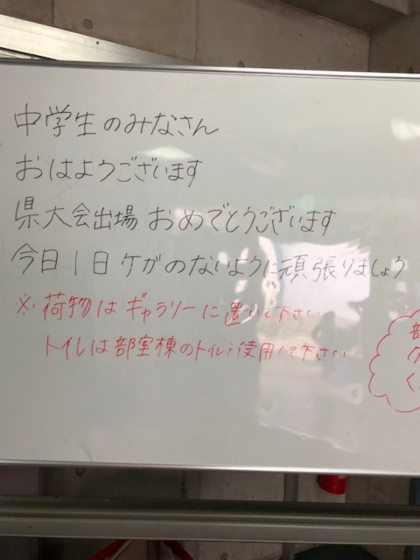 中学生のみなさん
おはようございます
県大会出場 おめでとうございます
今日1日ケガのないように頑張りましょう
※荷物はギャラリーに置いて下さい
トイレは部室棟のトイレを使用して下さい